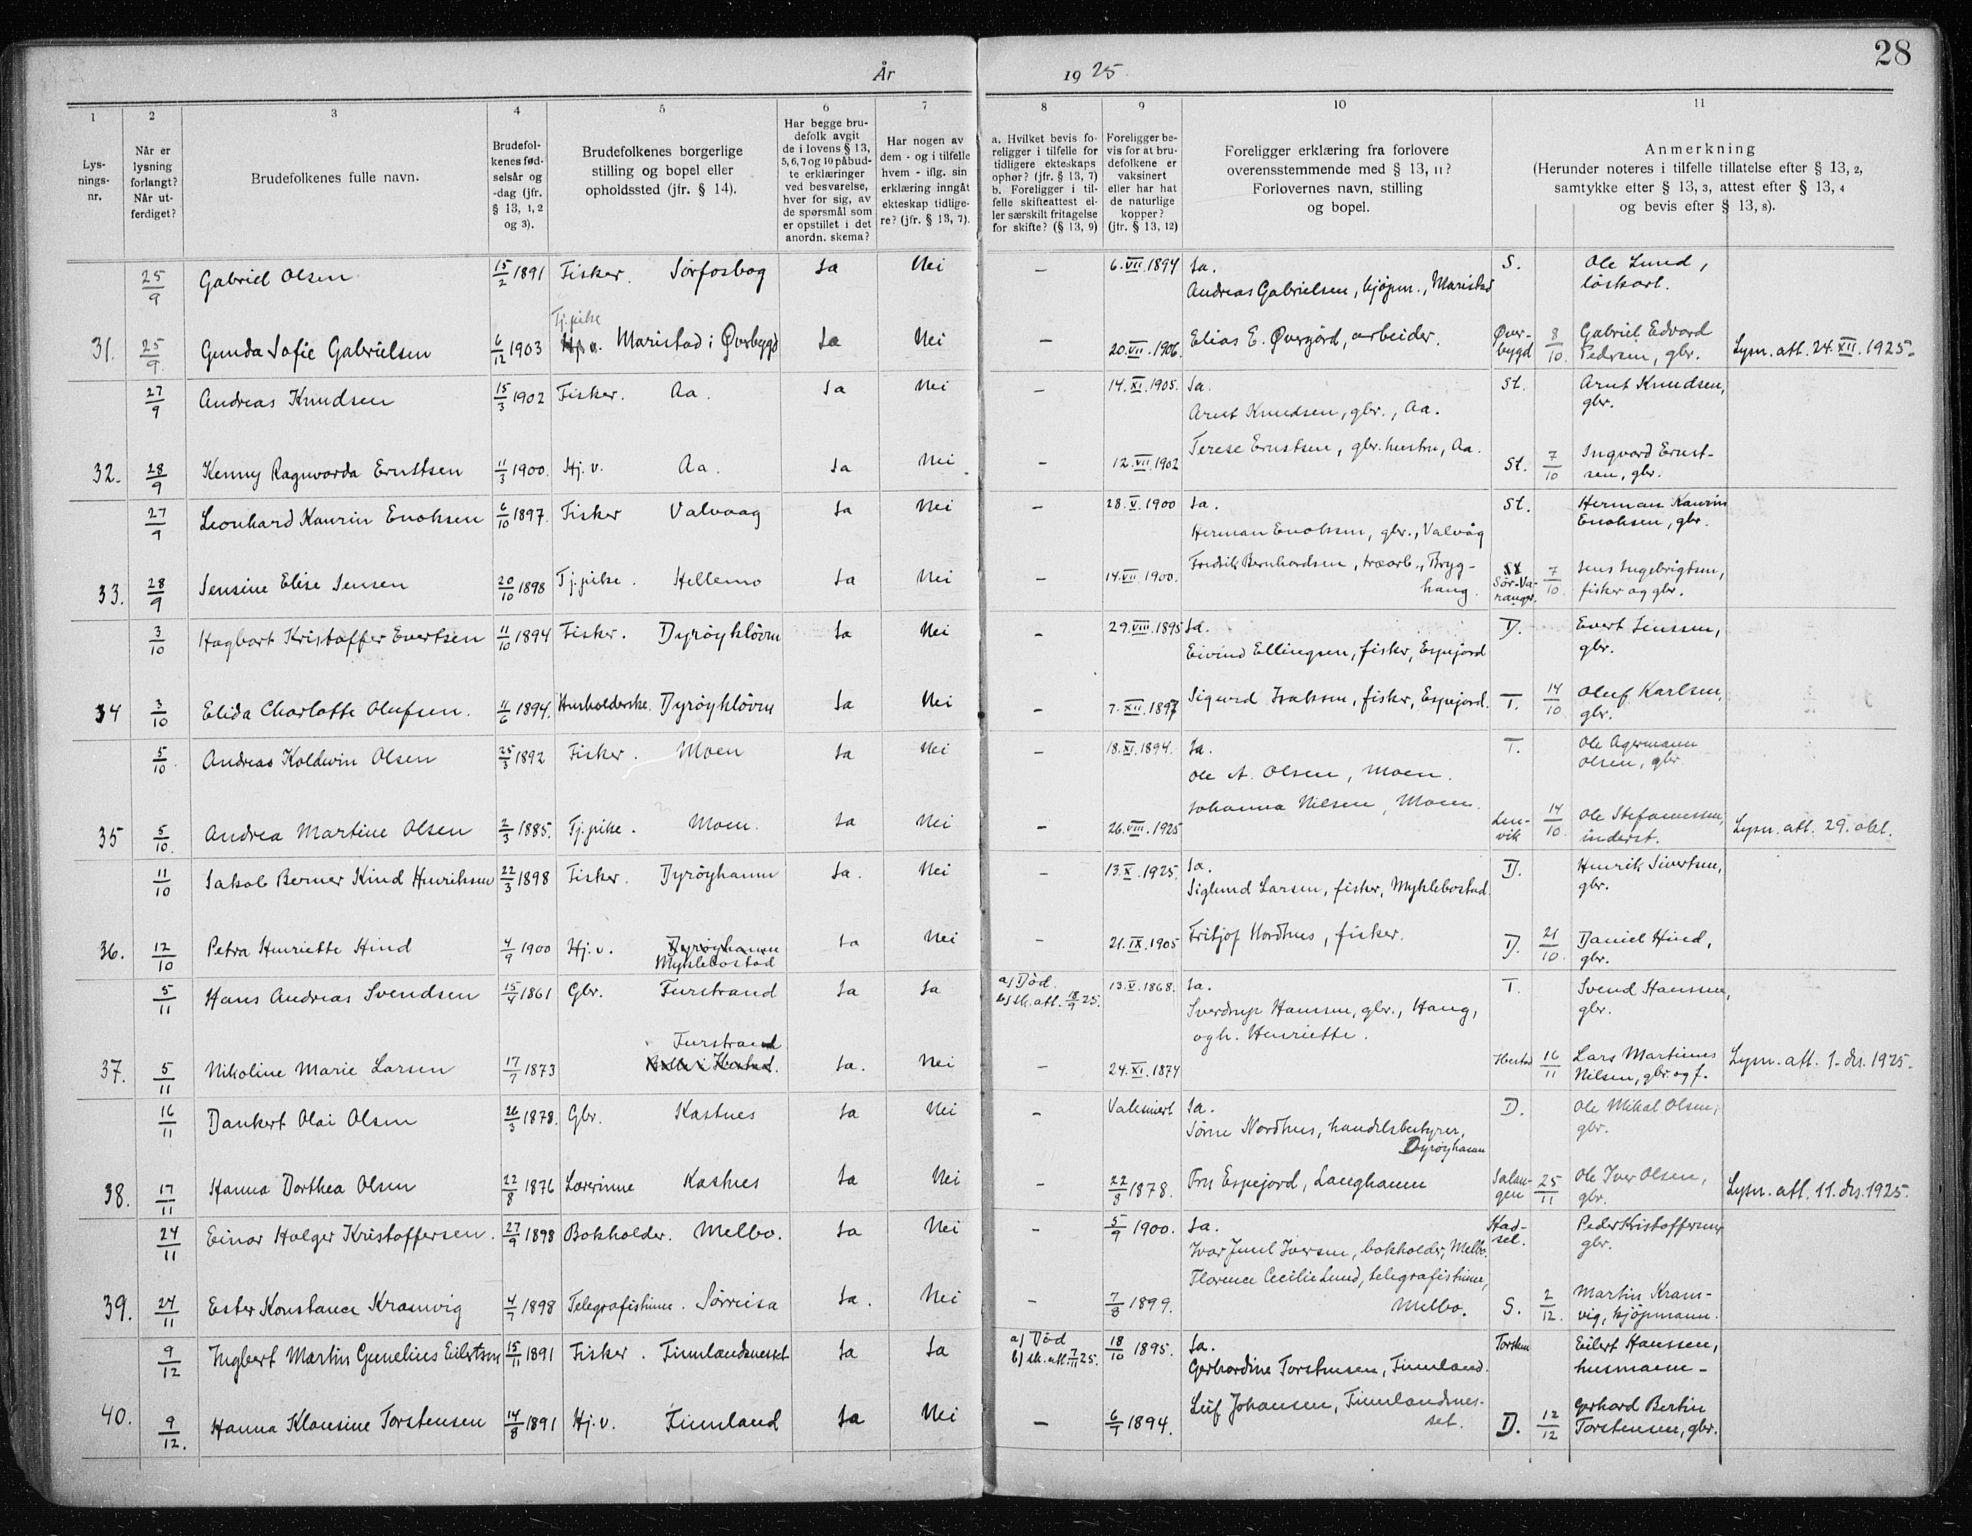 28
År 1925.
1 2 3 4 5 6 7 8 9 10 11
Lys-
nings-
nr.
Når er
lysning
forlangt?
Når ut-
ferdiget?
Brudefolkenes fulle navn.
Brudefol-
kenes fød-
selsår og
-dag (jfr.
§ 13, 1, 2
og 3).
Brudefolkenes borgerlige
stilling og bopel eller
opholdssted (jfr. § 14).
Har begge bru-
defolk avgit
de i lovens § 13,
5, 6, 7 og 10 påbud-
te erklæringer
ved besvarelse,
hver for sig, av
de spørsmål som
er opstillet i det
anordn. skema?
Har nogen av
dem - og i tilfelle
hvem - iflg. sin
erklæring inngått
ekteskap tidlige-
re? (jfr. § 13, 7).
a. Hvilket bevis fo-
religger i tilfelle for
tidligere ekteskaps
ophør? (jfr. § 13, 7)
b. Foreligger i til-
felle skifteattest el-
ler særskilt fritagelse
for skifte? (§ 13, 9)
Foreligger be-
vis for at bru-
defolkene er
vaksinert
eller har hat
de naturlige
kopper?
(jfr. § 13, 12)
Foreligger erklæring fra forlovere
overensstemmende med § 13, 11?
Forlovernes navn, stilling
og bopel.
Anmerkning
(Herunder noteres i tilfelle tillatelse efter § 13, 2,
samtykke efter § 13, 3, attest efter § 13, 4
og bevis efter § 13, 8).
25/9 Gabriel Olsen 15/2 1891 Fisker. Sørfosbog Ja Nei — 6.VII.1894 Ja. S. Ole Lund,
Andreas Gabrielsen, kjøpm., Maristad løskarl.
Tj.pike
31. 25/9 Gunda Sofie Gabrielsen 6/12 1903 Hj. v. Maristad i Øverbygd Ja Nei — 20.VII.1906. Elias E. Øvergård, arbeider. Øver-bygd 8/10 Gabriel Edvard
Pedersen, gbr. Lysn. att. 24.XII.1925.
27/9 Andreas Knudsen 15/3 1902 Fisker. Aa. Ja Nei — 14.XI.1905. Ja. St. Arnt Knudsen,
Arnt Knudsen, gbr., Aa. gbr.
32. 28/9 Kenny Ragnvarda Ernstsen 11/3 1900. Hj. v. Aa. Ja Nei — 12.VII.1902 Terese Ernstsen, gbr.hustru, Aa. St. 7/10 Ingvard Ernst-
sen, gbr.
27/9 Leonhard Kaurin Enoksen 6/10 1897. Fisker Valvaag Ja Nei — 28.V.1900 Ja. St. Herman Kaurin
Herman Enoksen, gbr., Valvåg Enoksen, gbr.
33. 28/9 Jensine Elise Jensen 20/10 1898 Tj.pike. Hellemo Ja Nei — 14.VII.1900. Fredrik Bernhardsen, træarb., Bryg-
haug. St Sør-Va-ranger. 7/10 Jens Ingebrigtsen,
fisker og gbr.
3/10 Hagbart Kristoffer Evertsen 11/10 1894 Fisker. Dyrøykløven Ja Nei — 29.VIII.1895 Ja. D. Evert Jenssen,
Eivind Ellingsen, fisker, Espejord gbr.
34 3/10 Elida Charlotte Olufsen. 11/6 1894. Husholderske. Dyrøykløven Ja Nei — 7.XII.1897 Sigurd Isaksen, fisker, Espejord. T. 14/10 Oluf Karlsen,
gbr.
5/10 Andreas Koldevin Olsen 25/3 1892 Fisker. Moen Ja Nei — 18.XI.1894. Ja. T. Ole Agermann
Ole A. Olsen, Moen. Olsen, gbr
35 5/10. Andrea Martine Olsen 2/3 1885. Tj.pike. Moen. Ja Nei — 26.VIII.1925 Johanna Nilsen, Moen. Len-vik 14/10. Ole Stefanussen,
inderst. Lysn. att. 29. okt.
11/10 Jakob Berner Kind Henriksen 22/3 1898 Fisker. Dyrøyhamn Ja. Nei — 13.X.1925. Ja. D. Henrik Sivertsen,
Siglund Larsen, fisker, Myklebostad. gbr.
36. 12/10 Petra Henriette Hind 4/9 1900 Hj. v. Dyrøyhamn
Myklebostad Ja Nei — 21.IX.1905 Fritjof Nordhus, fisker. D. 21/10 Daniel Hind,
gbr.
5/11 Hans Andreas Svendsen 15/4 1861 Gbr. Furstrand Ja Ja a) Død.
b) sk. att. 18/9 25. 13.V.1868. Ja. T. Svend Hanssen,
Sverdrup Hanssen, gbr., Haug, gbr.
og h. Henriette.
Furstrand
37. 5/11 Nikoline Marie Larsen 17/7 1873 Ja. Nei — 24.XI.1874 Ibestad 16/11 Lars Martinus
Nilsen, gbr. og f. Lysn. att. 1. des. 1925.
16/11 Dankert Olai Olsen 26/3 1878. Gbr. Kastnes Ja Nei — Vaksinert Ja. D. Ole Mikal Olsen,
Sørine Nordhus, handelsbestyrer, gbr.
Dyrøyhamn
38. 17/11 Hanna Dorthea Olsen 22/8 1876 Lærerinne Kastnes Ja Nei — 22/8 1878. Fru Espejord, Langhamn Salan-gen 25/11 Ole Iver Olsen,
gbr. Lysn. att. 11. des. 1925.
24/11 Einar Holger Kristoffersen. 27/9 1898 Bokholder. Melbo. Ja Nei — 5/9 1900. Ja. Had-sel. Peder Kristoffersen,
Ivar Juul Iversen, bokholder, Melbo. gbr.
Florence Cecilie Lund, telegrafistinne,
39. 24/11 Ester Konstance Kramvig 4/7 1898 Telegrafistinne. Sørreisa Ja. Nei — 7/8 1899. Melbo. S. 2/12. Martin Kram-
vig, kjøpmann.
9/12 Ingbert Martin Gunelius Eilertsen 15/11 1891 Fisker. Finnlandsnesset Ja Ja a) Død
b) sk. att. 7/11 25. 18/10 1895. Ja. Torsken Eilert Hanssen,
Gerhardine Torstensen, Finnland. husmann.
40. 9/12. Hanna Klausine Torstensen 14/8 1891 Hj. v. Finnland Ja Nei — 6/7 1894. Leif Johansen, Finnlandsnes-
set. D. 12/12 Gerhard Bertin
Torstensen, gbr.